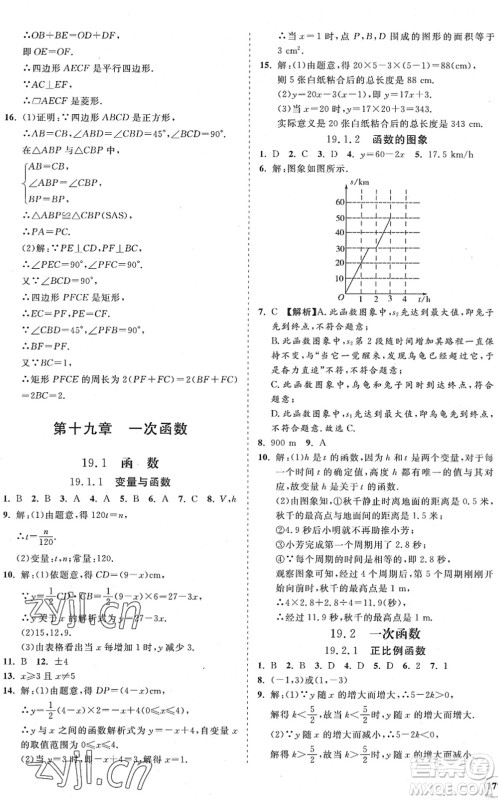 ∴BE+OB=OD+DF,
即 OE=OF.
∴四边形 AECF 是平行四边形.
∵AC⊥EF,
∴□AECF 是菱形.
16. (1)证明:∵四边形 ABCD 是正方形,
∴AB=CB,∠ABD=∠CBD=45°.
在△ABP 与△CBP 中,
AB=CB,
∠ABP=∠CBP,
BP=BP,
∴△ABP≌△CBP(SAS).
∴PA=PC.
(2)解:∵PE⊥CD,PF⊥BC,
∴∠PFC=90°,∠PEC=90°.
又∵∠BCD=90°,
∴四边形 PFCE 是矩形.
∴EC=PF.
又∵∠CBD=45°,∠PFB=90°,
∴BF=PF.
又∵BC=1,
∴矩形 PFCE 的周长为 2(PF+FC)=2(BF+FC)=2BC=2.
第十九章 一次函数
19.1 函 数
19.1.1 变量与函数
1. B 2. B 3. A 4. A 5. B 6. A 7. C 8. V,h
9. 解:(1)由题意,得 120t=n,
∴t=n/120.
(2)变量:t,n;常量:120.
10. 解:(1)依题意,得 CD=(9-x)cm,
(2)15,12,9.
(3)由表格看出当 x 每增加 1 时,y 减少 3.
11. B 12. ±4
13. x≥3 x≠5
14. 解:(1)由题意,得 DP=(4-x)cm,
∴y 与 x 之间的函数解析式为
(2)当 x=1 时,
∴当 P 距 A 点 1 cm 时,D,P,B,C 围成的图形的面积等于 3 cm².
15. 解:(1)由题意,得 20×5-3×(5-1)=88(cm),
则 5 张白纸粘合后的总长度是 88 cm.
(2)y=20x-3(x-1),即 y=17x+3.
(3)当 x=20 时,y=17x+3=343.
实际意义是 20 张白纸粘合后的总长度是 343 cm.
19.1.2 函数的图象
1. D 2. C 3. C 4. y=60-2x 5. 17.5 km/h
6. 解:图象如图所示.
s/km
60
50
40
30
20
10
O 1 2 3 4 t/h
7. C 【解析】A. 此函数图象中,s₂先达到最大值,即兔子先到终点,不符合题意;
B. 此函数图象中,s₂ 第 2 段随时间增加其路程一直保持不变,与“当它一觉醒来,发现乌龟快到终点了,于是奋力直追”不符,不符合题意;
C. 此函数图象中,s₁ 先达到最大值,即乌龟先到终点,符合题意;
D. 此函数图象中,乌龟和兔子同时到达终点,不符合题意.
8. 900 m 9. A
10. 解:(1)h 是 t 的函数,理由:变化过程中有两个变量 t,h,对于 t 的每一个确定的值,h 都有唯一的值与其对应,所以 h 是 t 的函数.
(2)由函数图象知,①秋千静止时离地面的距离是 0.5 米,秋千的最高点与地面的距离是 1.5 米;
②0.7 秒时,小芳荡到秋千的最高点;
③小芳完成第一个来回用了 2.8 秒;
④∵小芳荡一个来回用了 2.8 秒,
观察图象可知,秋千最高点与地面的距离逐渐减小,
∴4×2.8=11.2(秒).
∴第四个来回后,秋千的最高点离地面的距离小于 1 m.
19.2 一次函数
19.2.1 正比例函数
1. B 2. C 3. A 4. B 5. D 6. 2 7. 1
8. (-1,3)或(1,-3)
9. 解:(1)∵y 随 x 的增大而增大,∴5-2k>0.
解得 k<5/2,故当 k<5/2时,y 随 x 的增大而增大.
(2)∵y 随 x 的增大而减小,∴5-2k<0.
zyjl.cn
答案圈